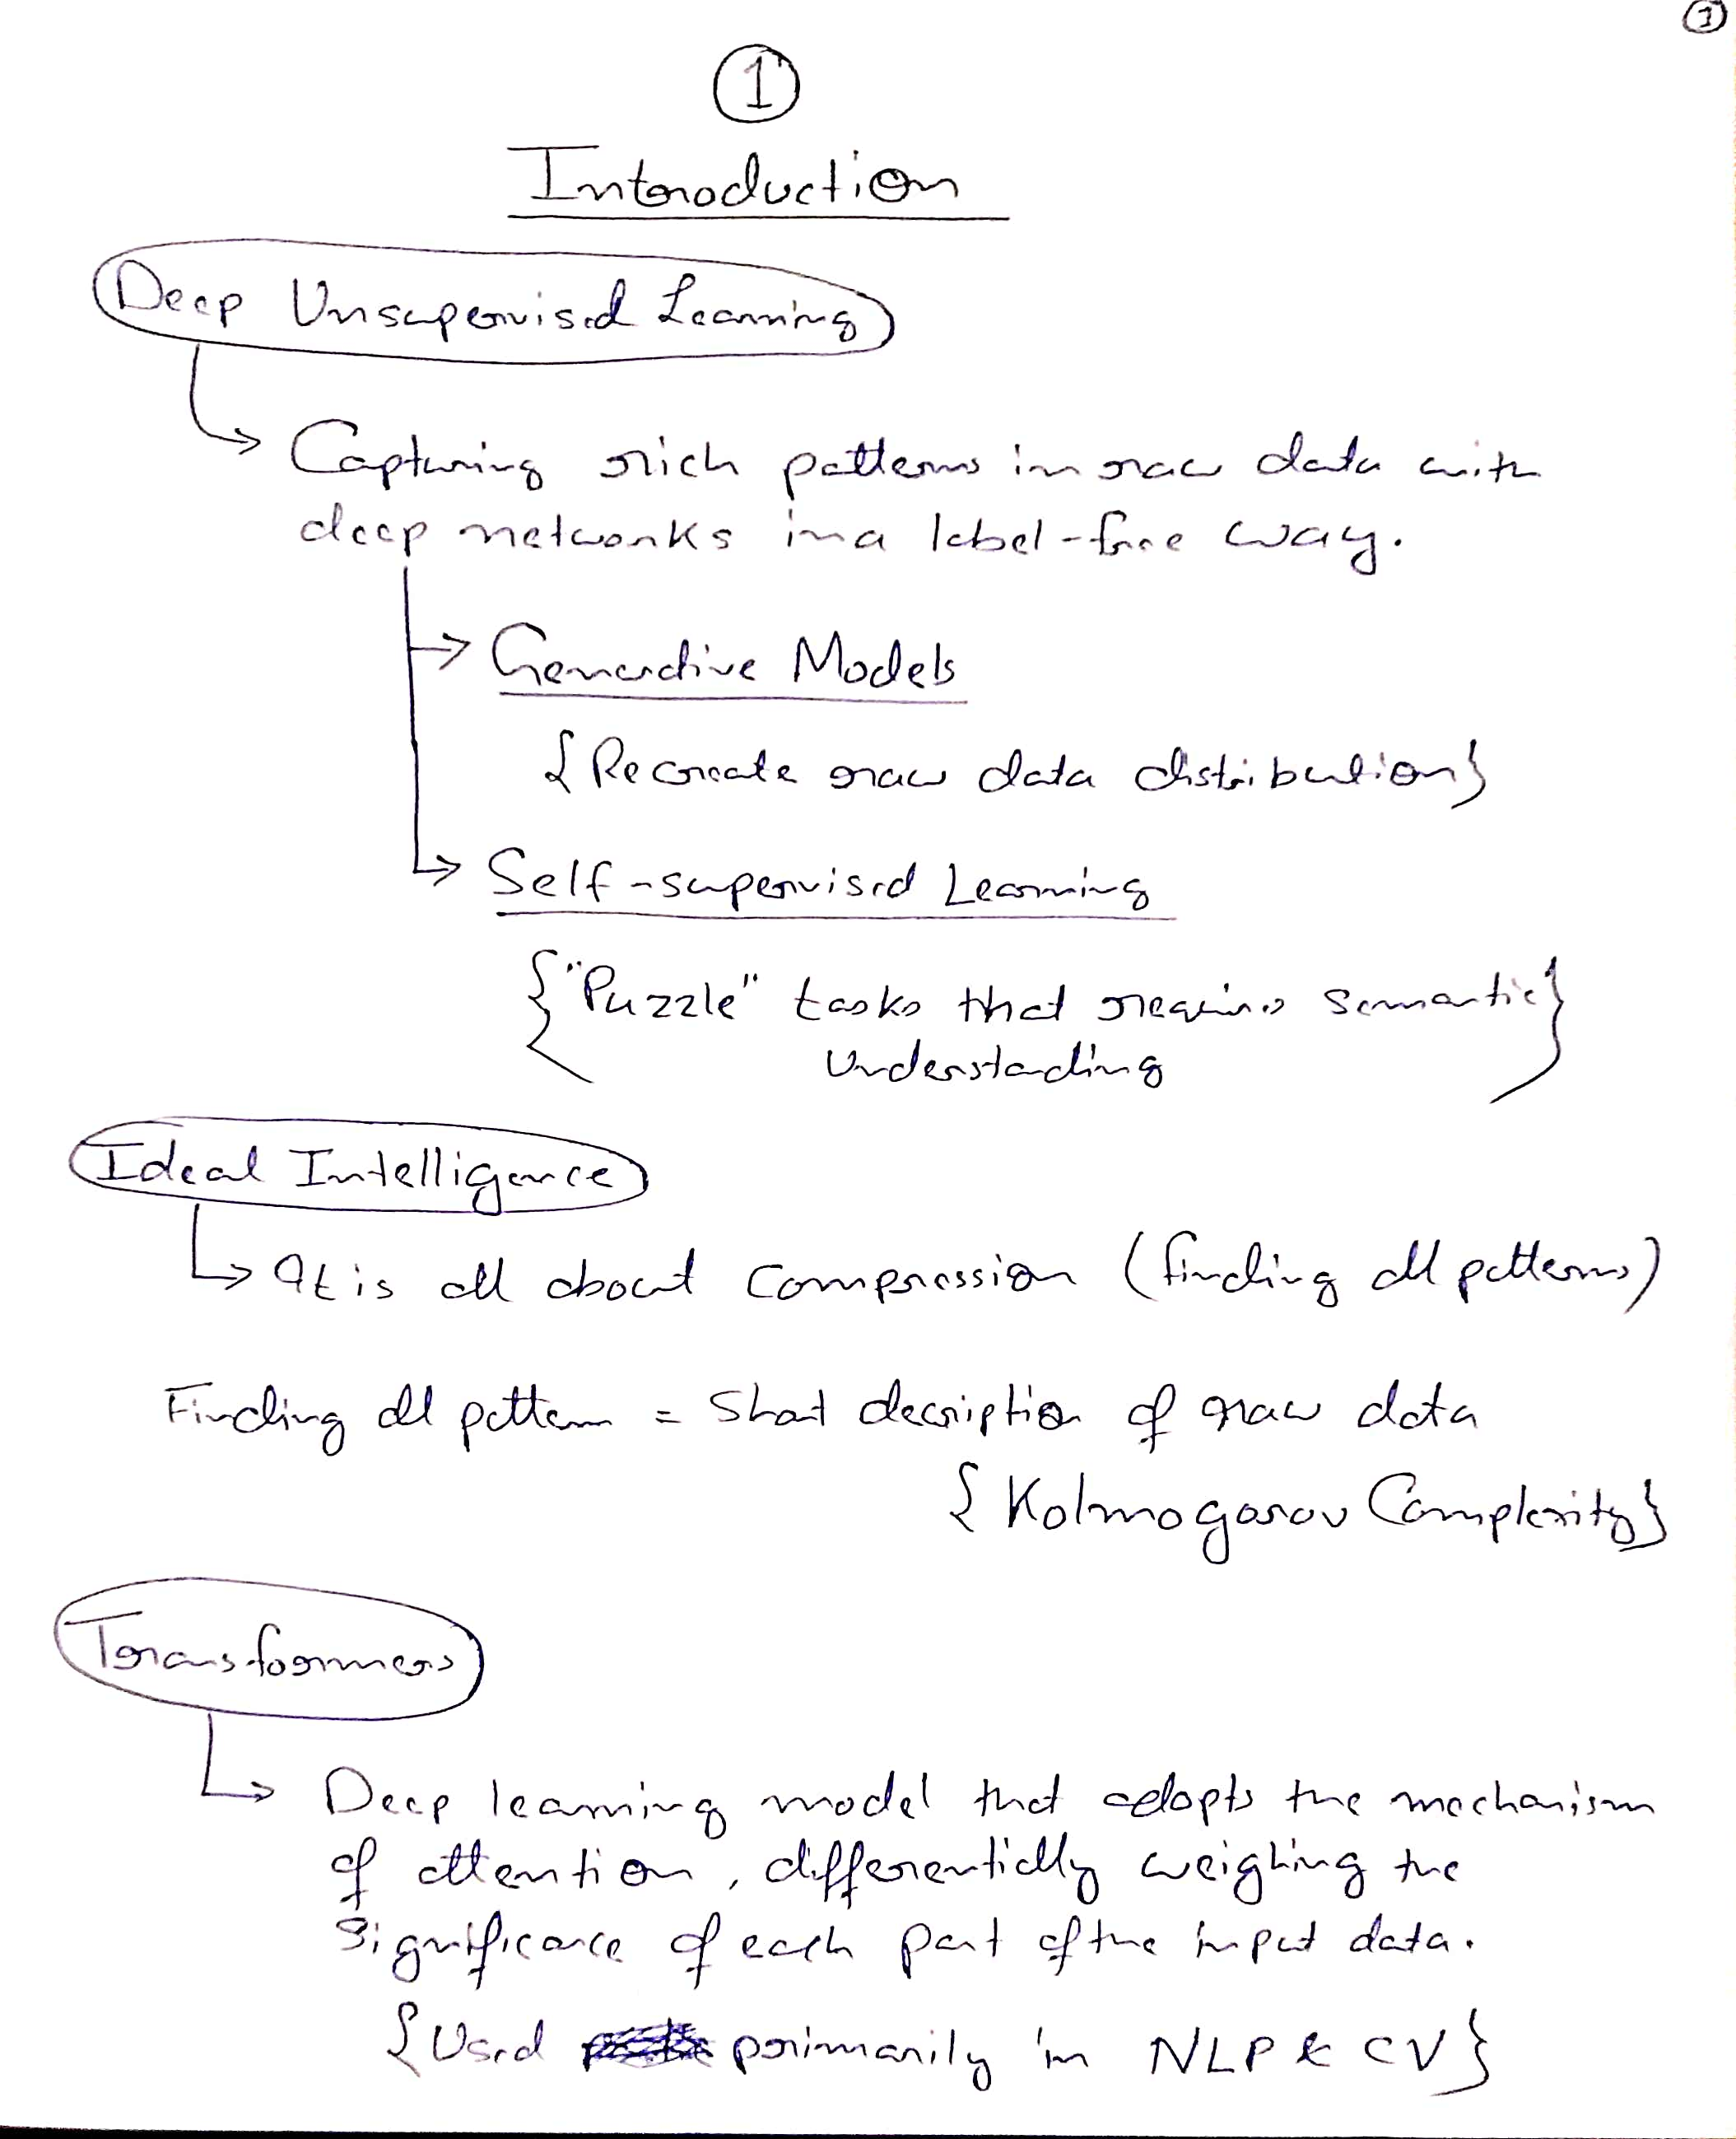 ①
①
Introduction
Deep Unsupervised Learning
Capturing rich patterns in raw data with
deep networks in a label-free way.
Generative Models
{Recreate raw data distribution}
Self-supervised Learning
{"Puzzle" tasks that requires semantic}
Understanding
Ideal Intelligence
It is all about compression (finding all patterns)
Finding all pattern = Short decription of raw data
{Kolmogorov Complexity}
Transformers
Deep learning model that adopts the mechanism
of attention, differentially weighing the
significance of each part of the input data.
{Used primarily in NLP & CV}